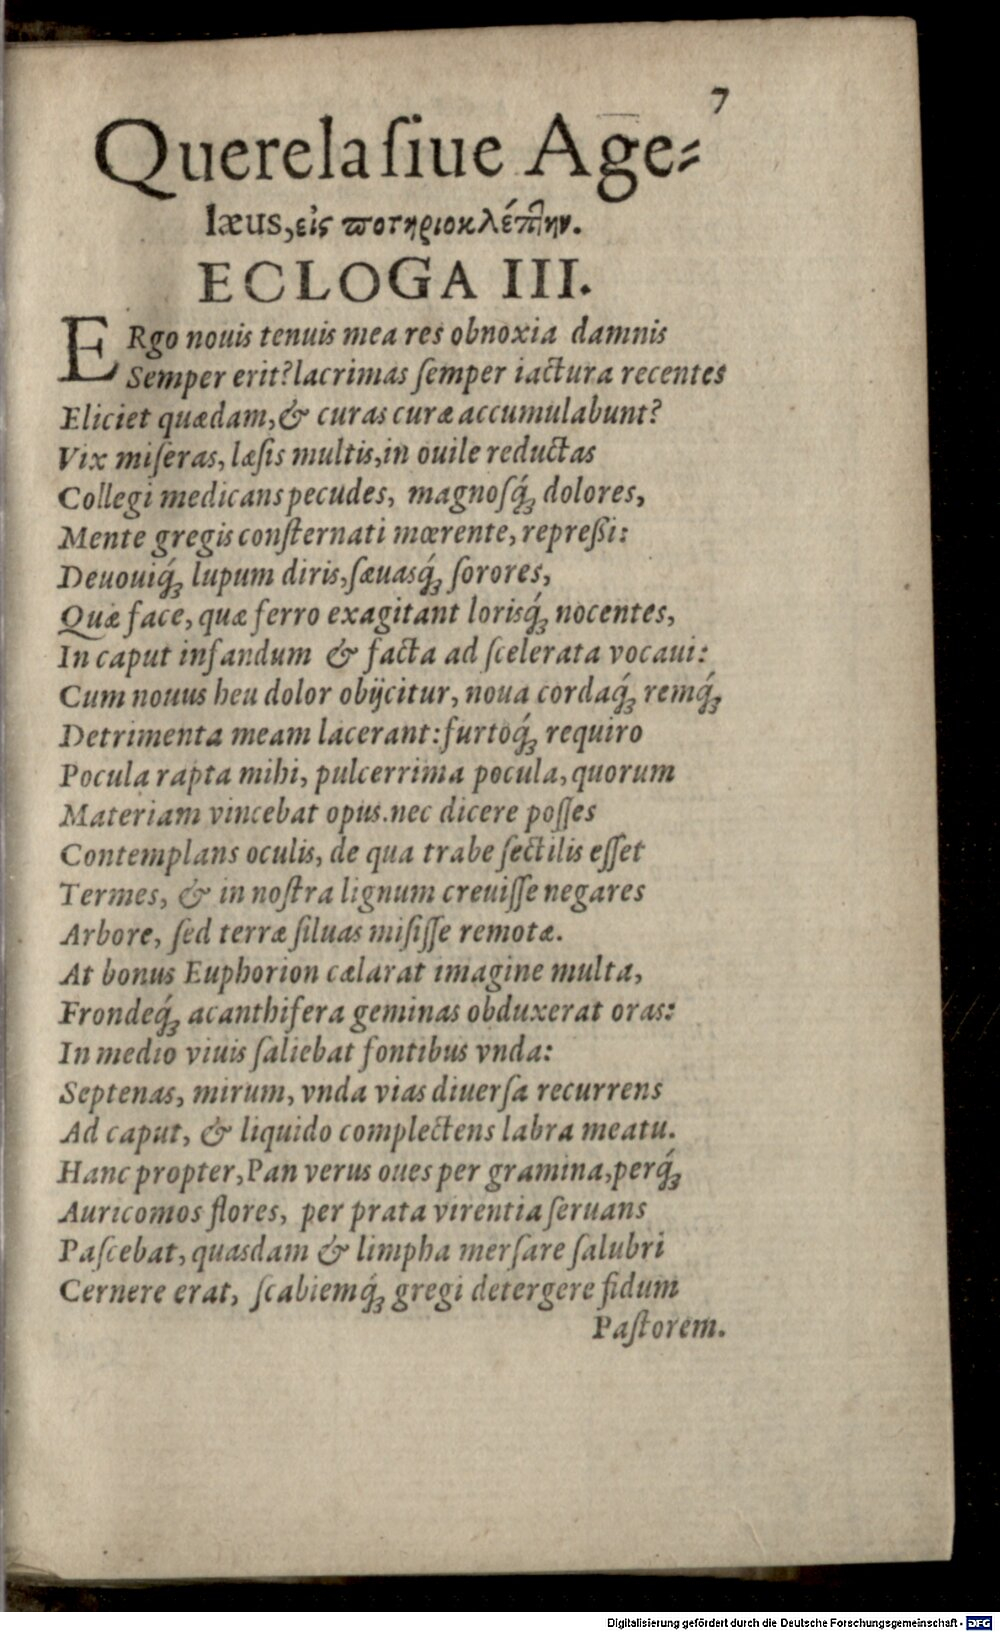 7
Querela ſiue Age-
læus, εἰς ποτηριοκλέπτην.
ECLOGA III.
ERgo nouis tenuis mea res obnoxia damnis
Semper erit? lacrimas ſemper iactura recentes
Eliciet quædam, & curas curæ accumulabunt?
Vix miſeras, læſis multis, in ouile reductas
Collegi medicans pecudes, magnoſq́ꝫ dolores,
Mente gregis conſternati mœrente, repreßi:
Deuouiq́ꝫ lupum diris, ſæuasq́ꝫ ſorores,
Quæ face, quæ ferro exagitant lorisq́ꝫ nocentes,
In caput infandum & facta ad ſcelerata vocaui:
Cum nouus heu dolor obijcitur, noua cordaq́ꝫ remq́ꝫ
Detrimenta meam lacerant: furtoq́ꝫ requiro
Pocula rapta mihi, pulcerrima pocula, quorum
Materiam vincebat opus. nec dicere poſſes
Contemplans oculis, de qua trabe ſectilis eſſet
Termes, & in noſtra lignum creuiſſe negares
Arbore, ſed terræ ſiluas miſiſſe remotæ.
At bonus Euphorion cælarat imagine multa,
Frondeq́ꝫ acanthifera geminas obduxerat oras:
In medio viuis ſaliebat fontibus vnda:
Septenas, mirum, vnda vias diuerſa recurrens
Ad caput, & liquido complectens labra meatu.
Hanc propter, Pan verus oues per gramina, perq́ꝫ
Auricomos flores, per prata virentia ſeruans
Paſcebat, quasdam & limpha merſare ſalubri
Cernere erat, ſcabiemq́ꝫ gregi detergere fidum
Paſtorem.
Digitalisierung gefördert durch die Deutsche Forschungsgemeinschaft - DFG